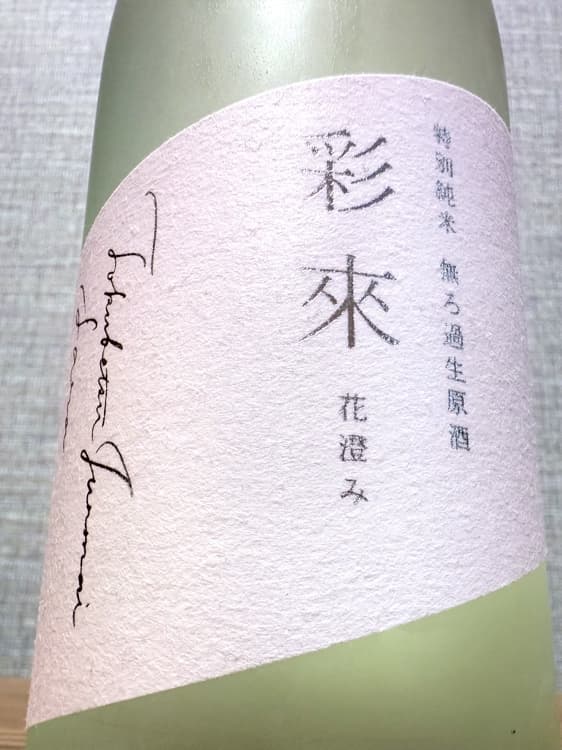 特別純米 無ろ過生原酒
彩來
花澄み
Tokubetsu Junmai
Sara